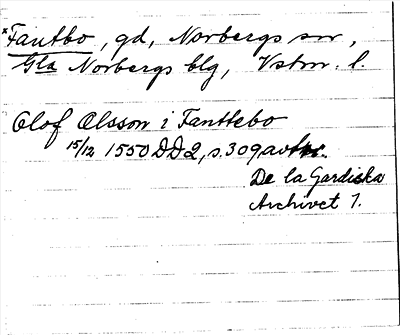 *Fantbo, gd, Norbergs sn,
Gla Norbergs blg, Vstm. l.
Olof Olsson i Fanttebo
15/12 1550 DD2, s. 309 avskr.
De la Gardiska
Archivet 1.